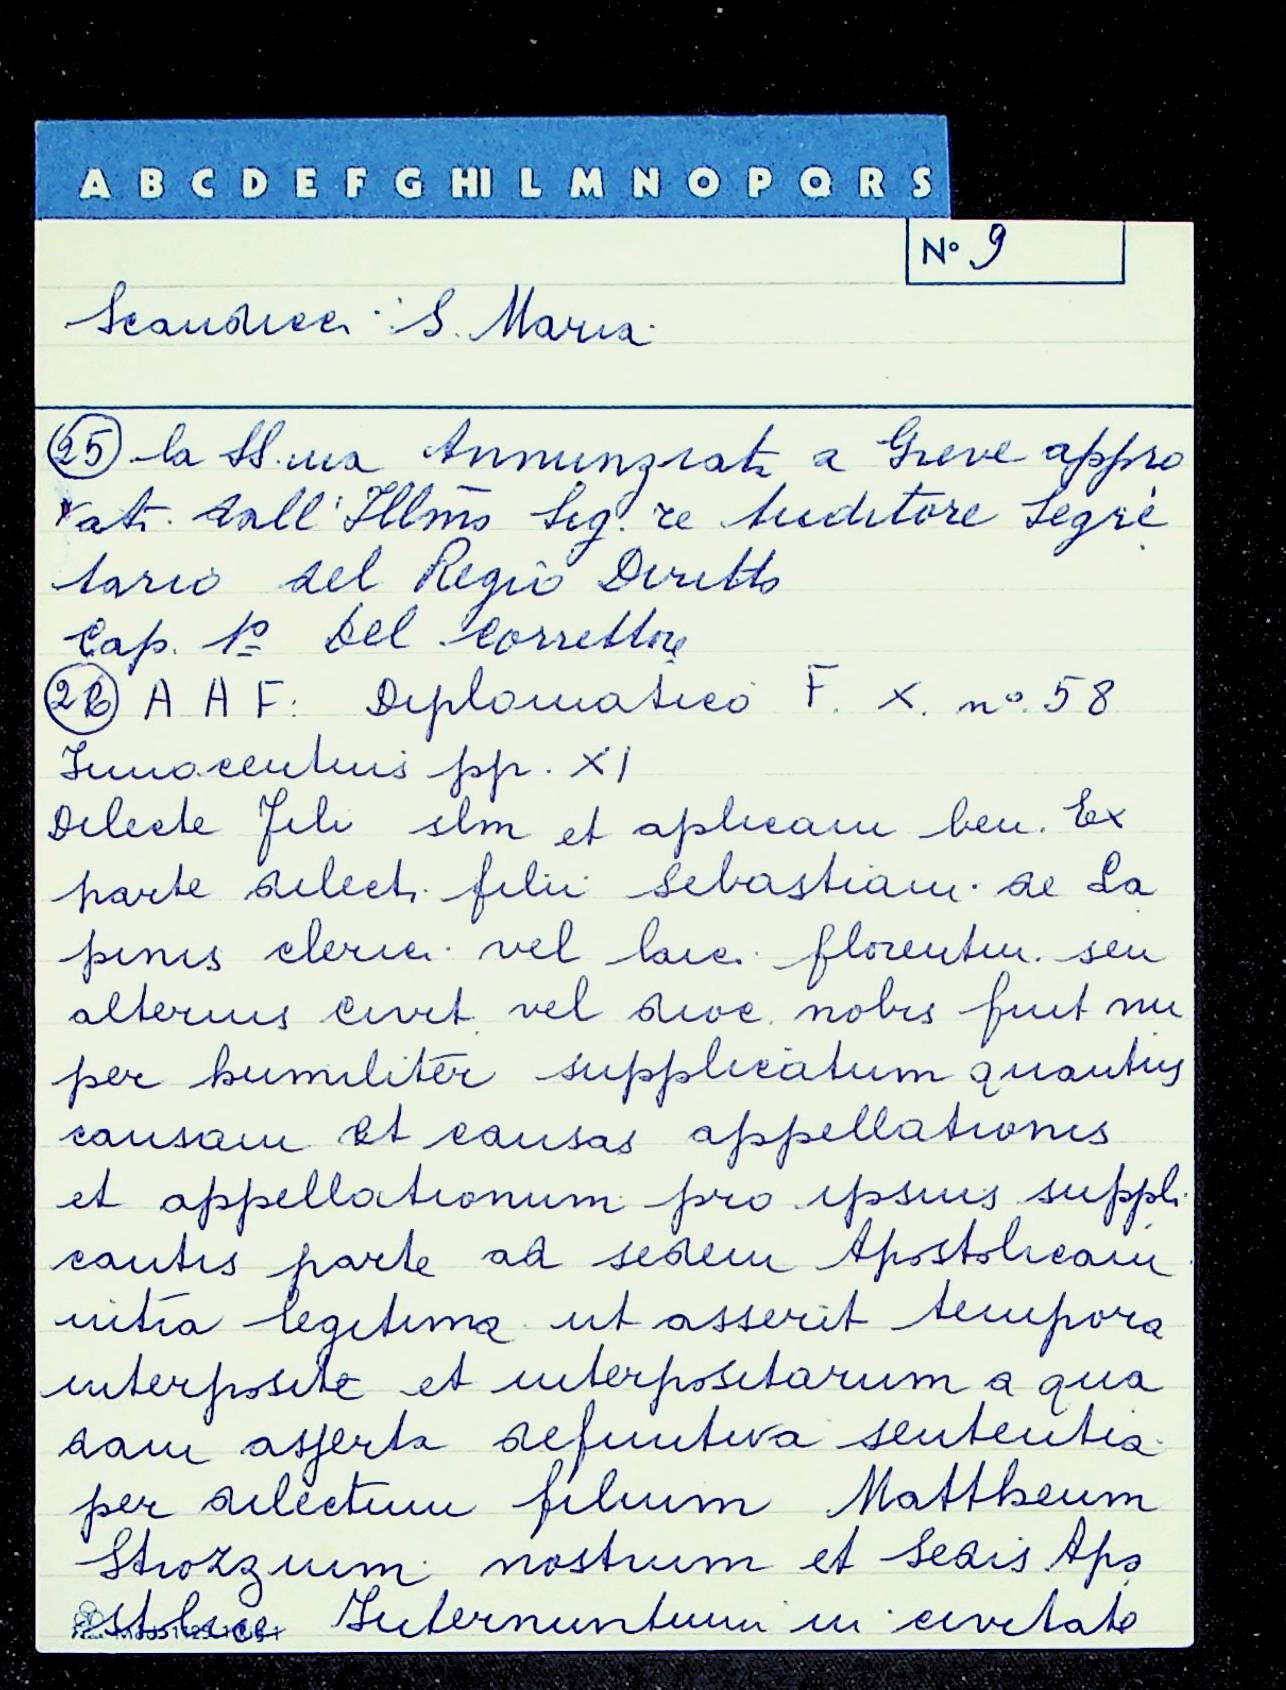 A B C D E F G HI L M N O P Q R S
Nº 9
Scandicci S. Maria
25 la SS.ma Annunziata a Greve appro
vati dall'Illm̄o Sig.re Auditore Segre
tario del Regio Diritto
Cap. 1º Del Correttore
26 A A F: Diplomatico F. X. nº 58
Innocentius pp. XI
Dilecte Fili slm et aplicam ben. Ex
parte dilecti filii Sebastiani de La
pinis clerici vel laici florentin. seu
alterius civit vel dioc. nobis fuit nu
per humiliter supplicatum quantus
causam et causas appellationis
et appellationum pro ipsius suppli
cantis parte ad sedem Apostolicam
intra legitima ut asserit tempora
interposite et interpositarum a qua
dam asserta definitiva sententia
per dilectum filium Mattheum
Strozzium nostrum et Sedis Apo
stolice Internuntium in civitate